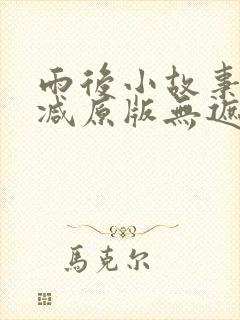 雨後小故事
减原版無遮
馬克尔